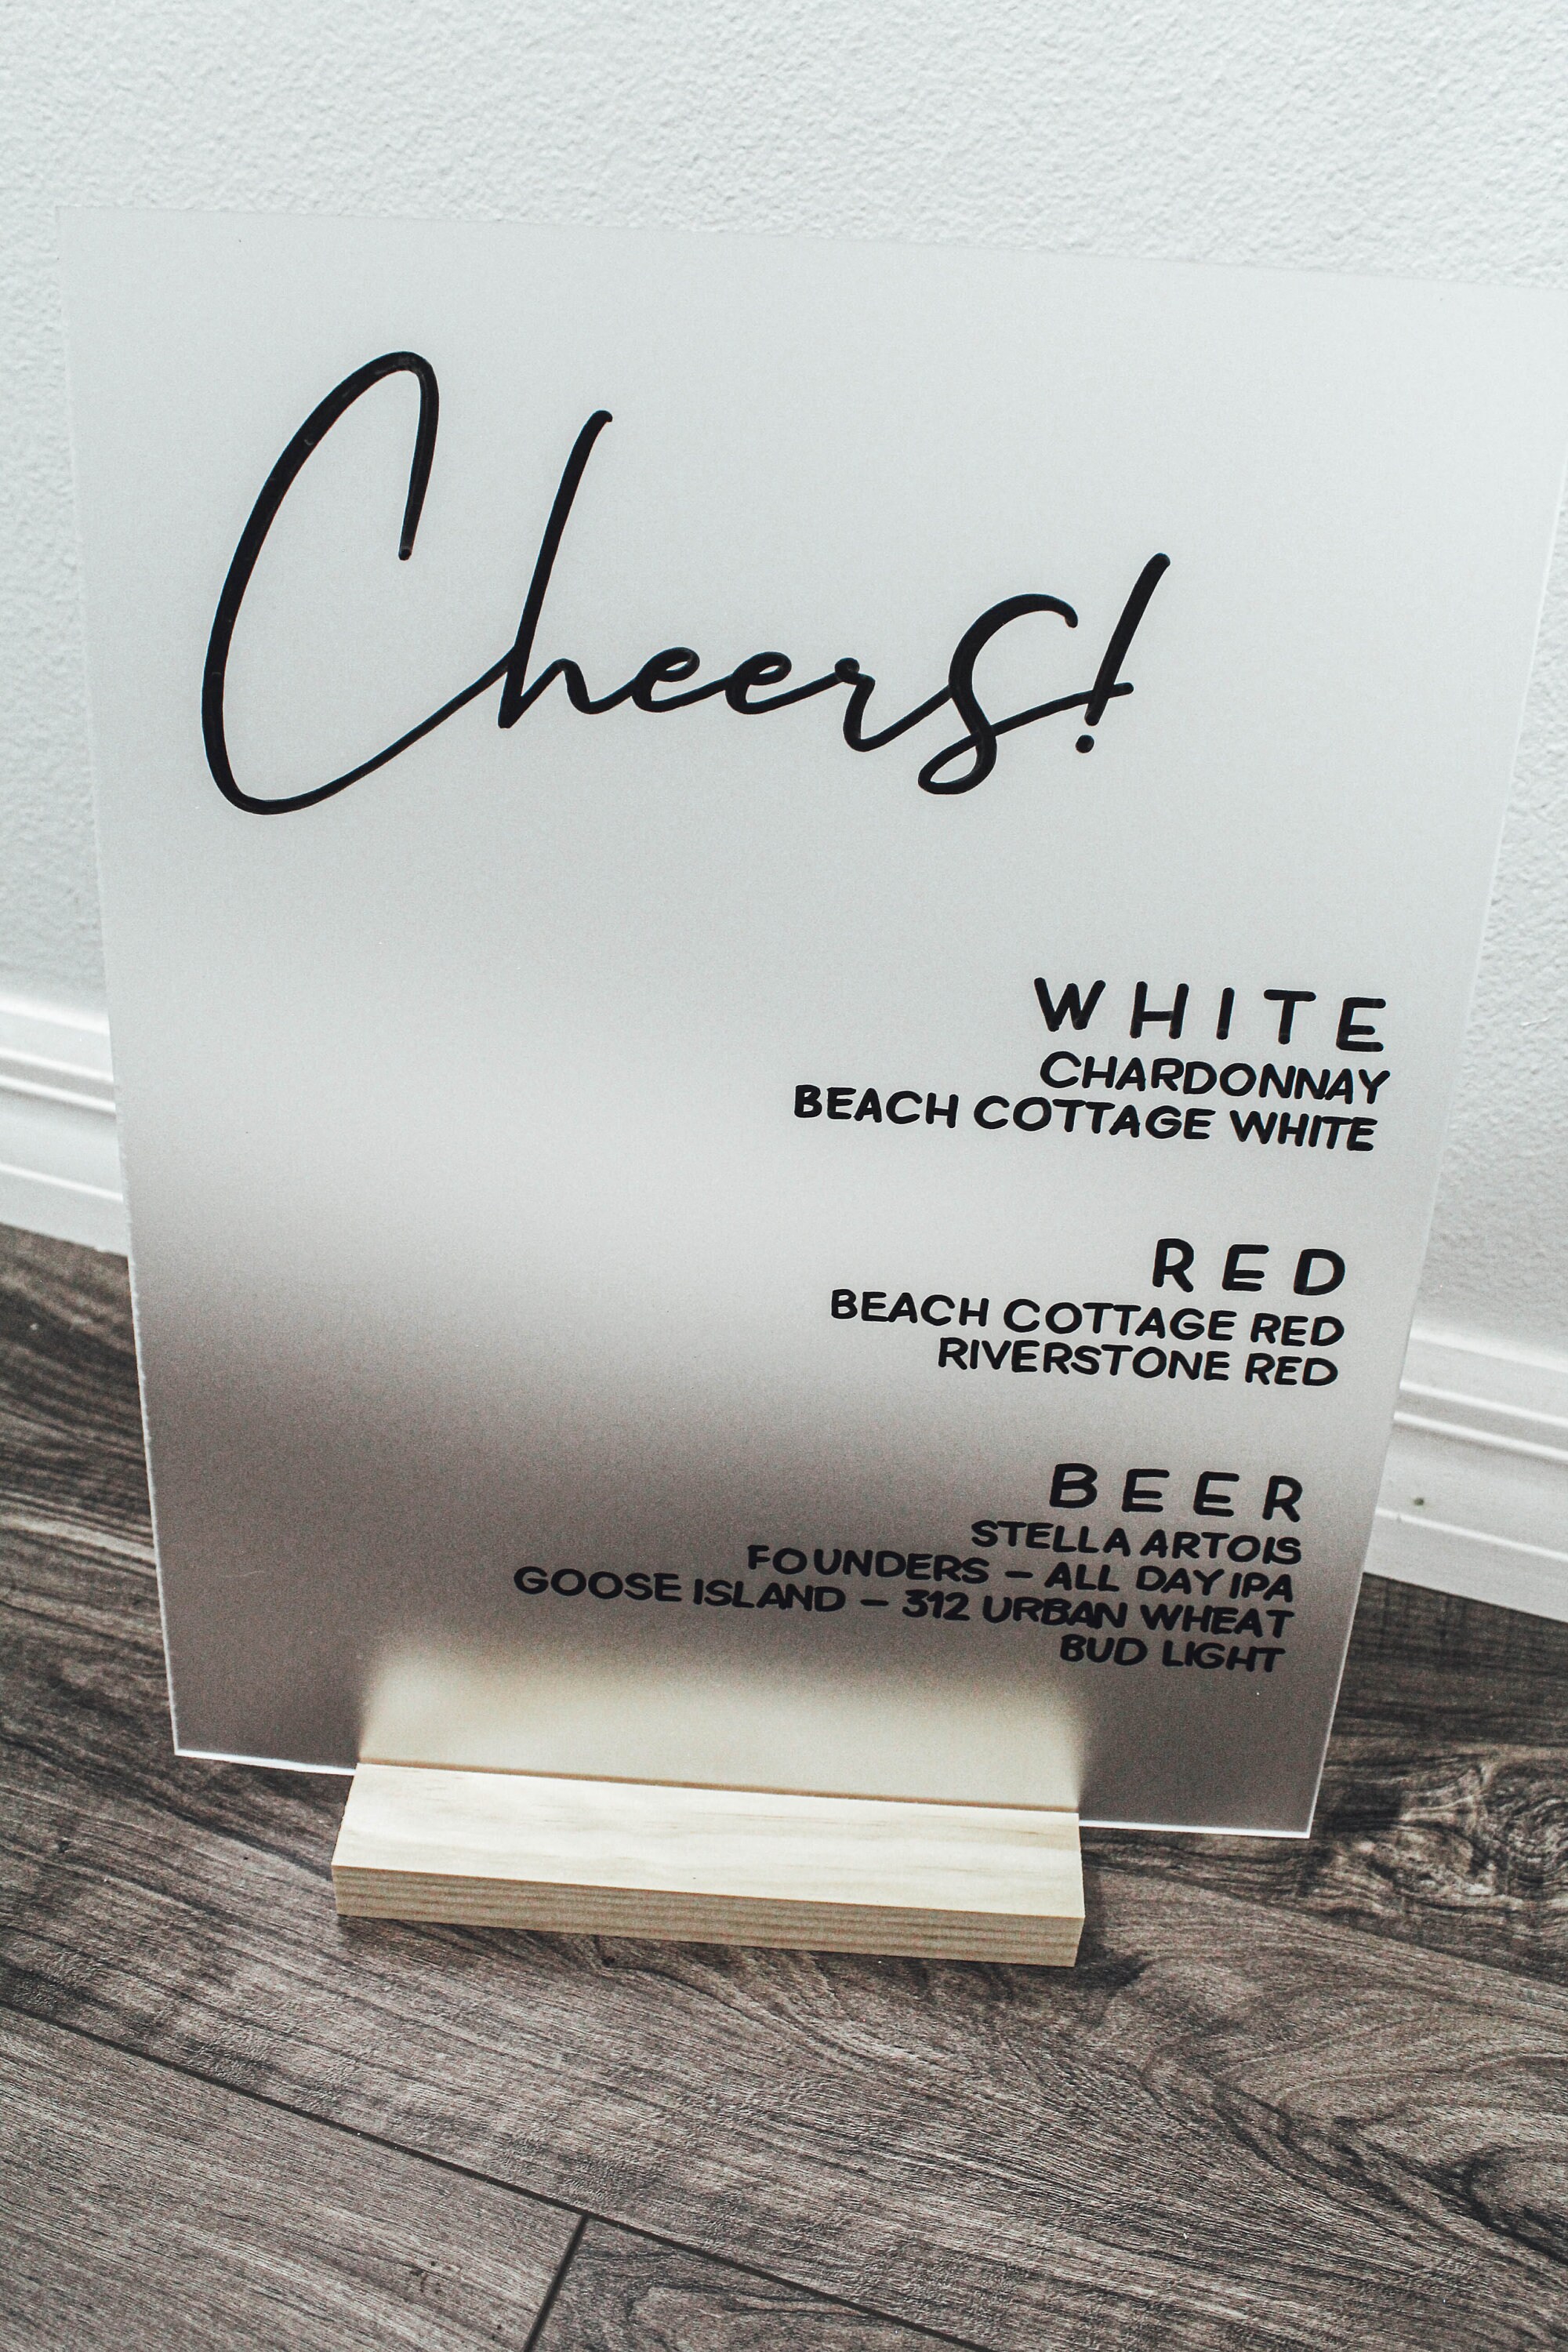 Cheers!
WHITE
CHARDONNAY
BEACH COTTAGE WHITE
RED
BEACH COTTAGE RED
RIVERSTONE RED
BEER
STELLA ARTOIS
FOUNDERS – ALL DAY IPA
GOOSE ISLAND – 312 URBAN WHEAT
BUD LIGHT